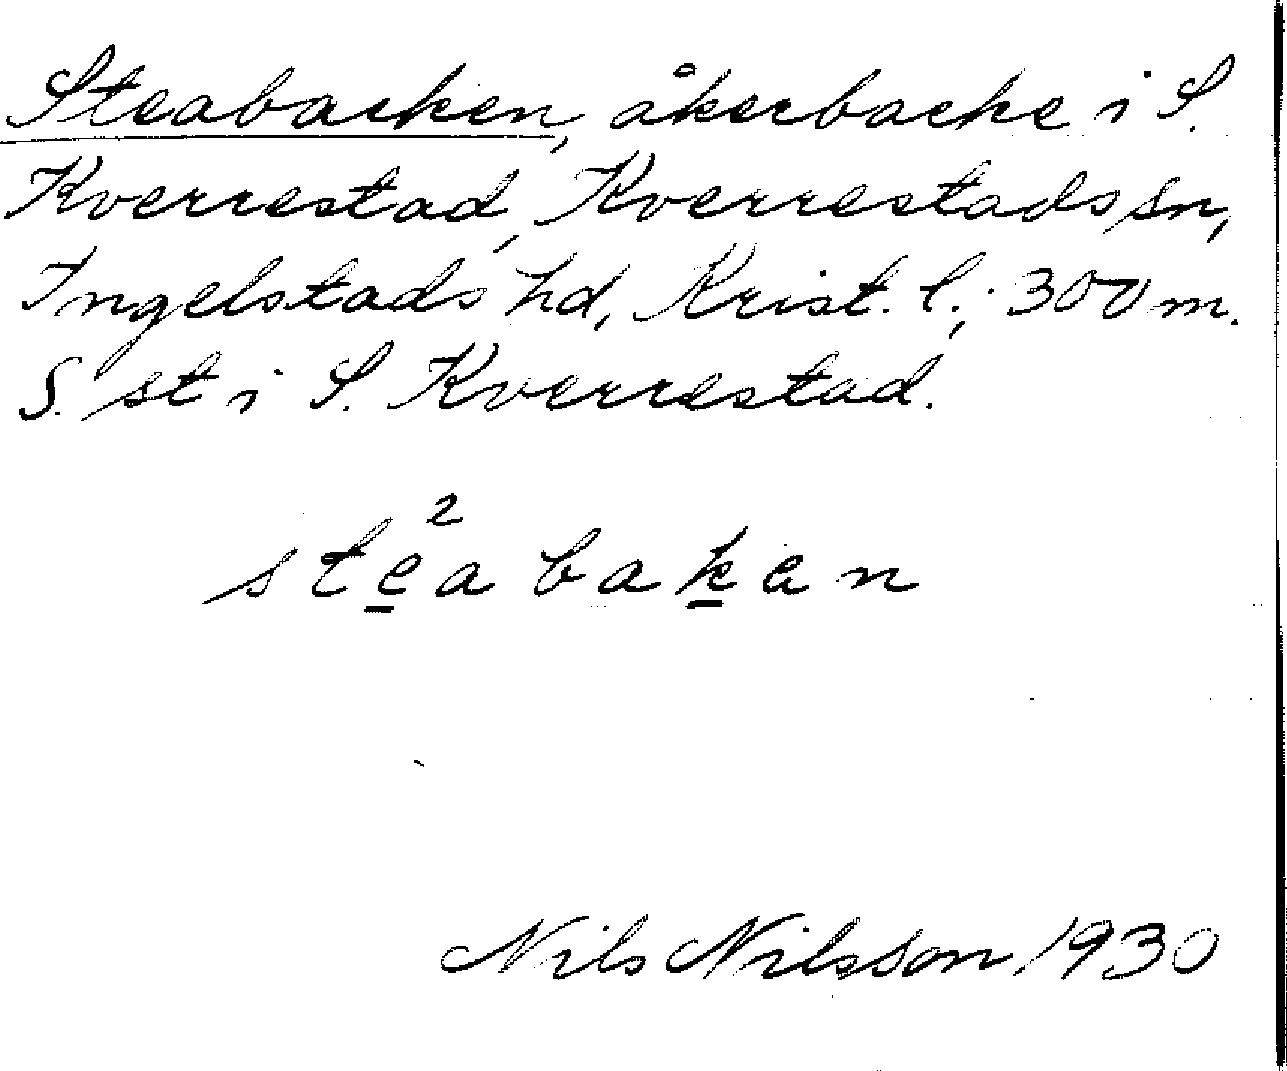 Steabacken, åkerbacke i S.
Kverrestad, Kverrestads sn,
Ingelstads hd, Krist. l.; 300 m.
S. st i S. Kverrestad.
ste̲²abak̲en
Nils Nilsson 1930